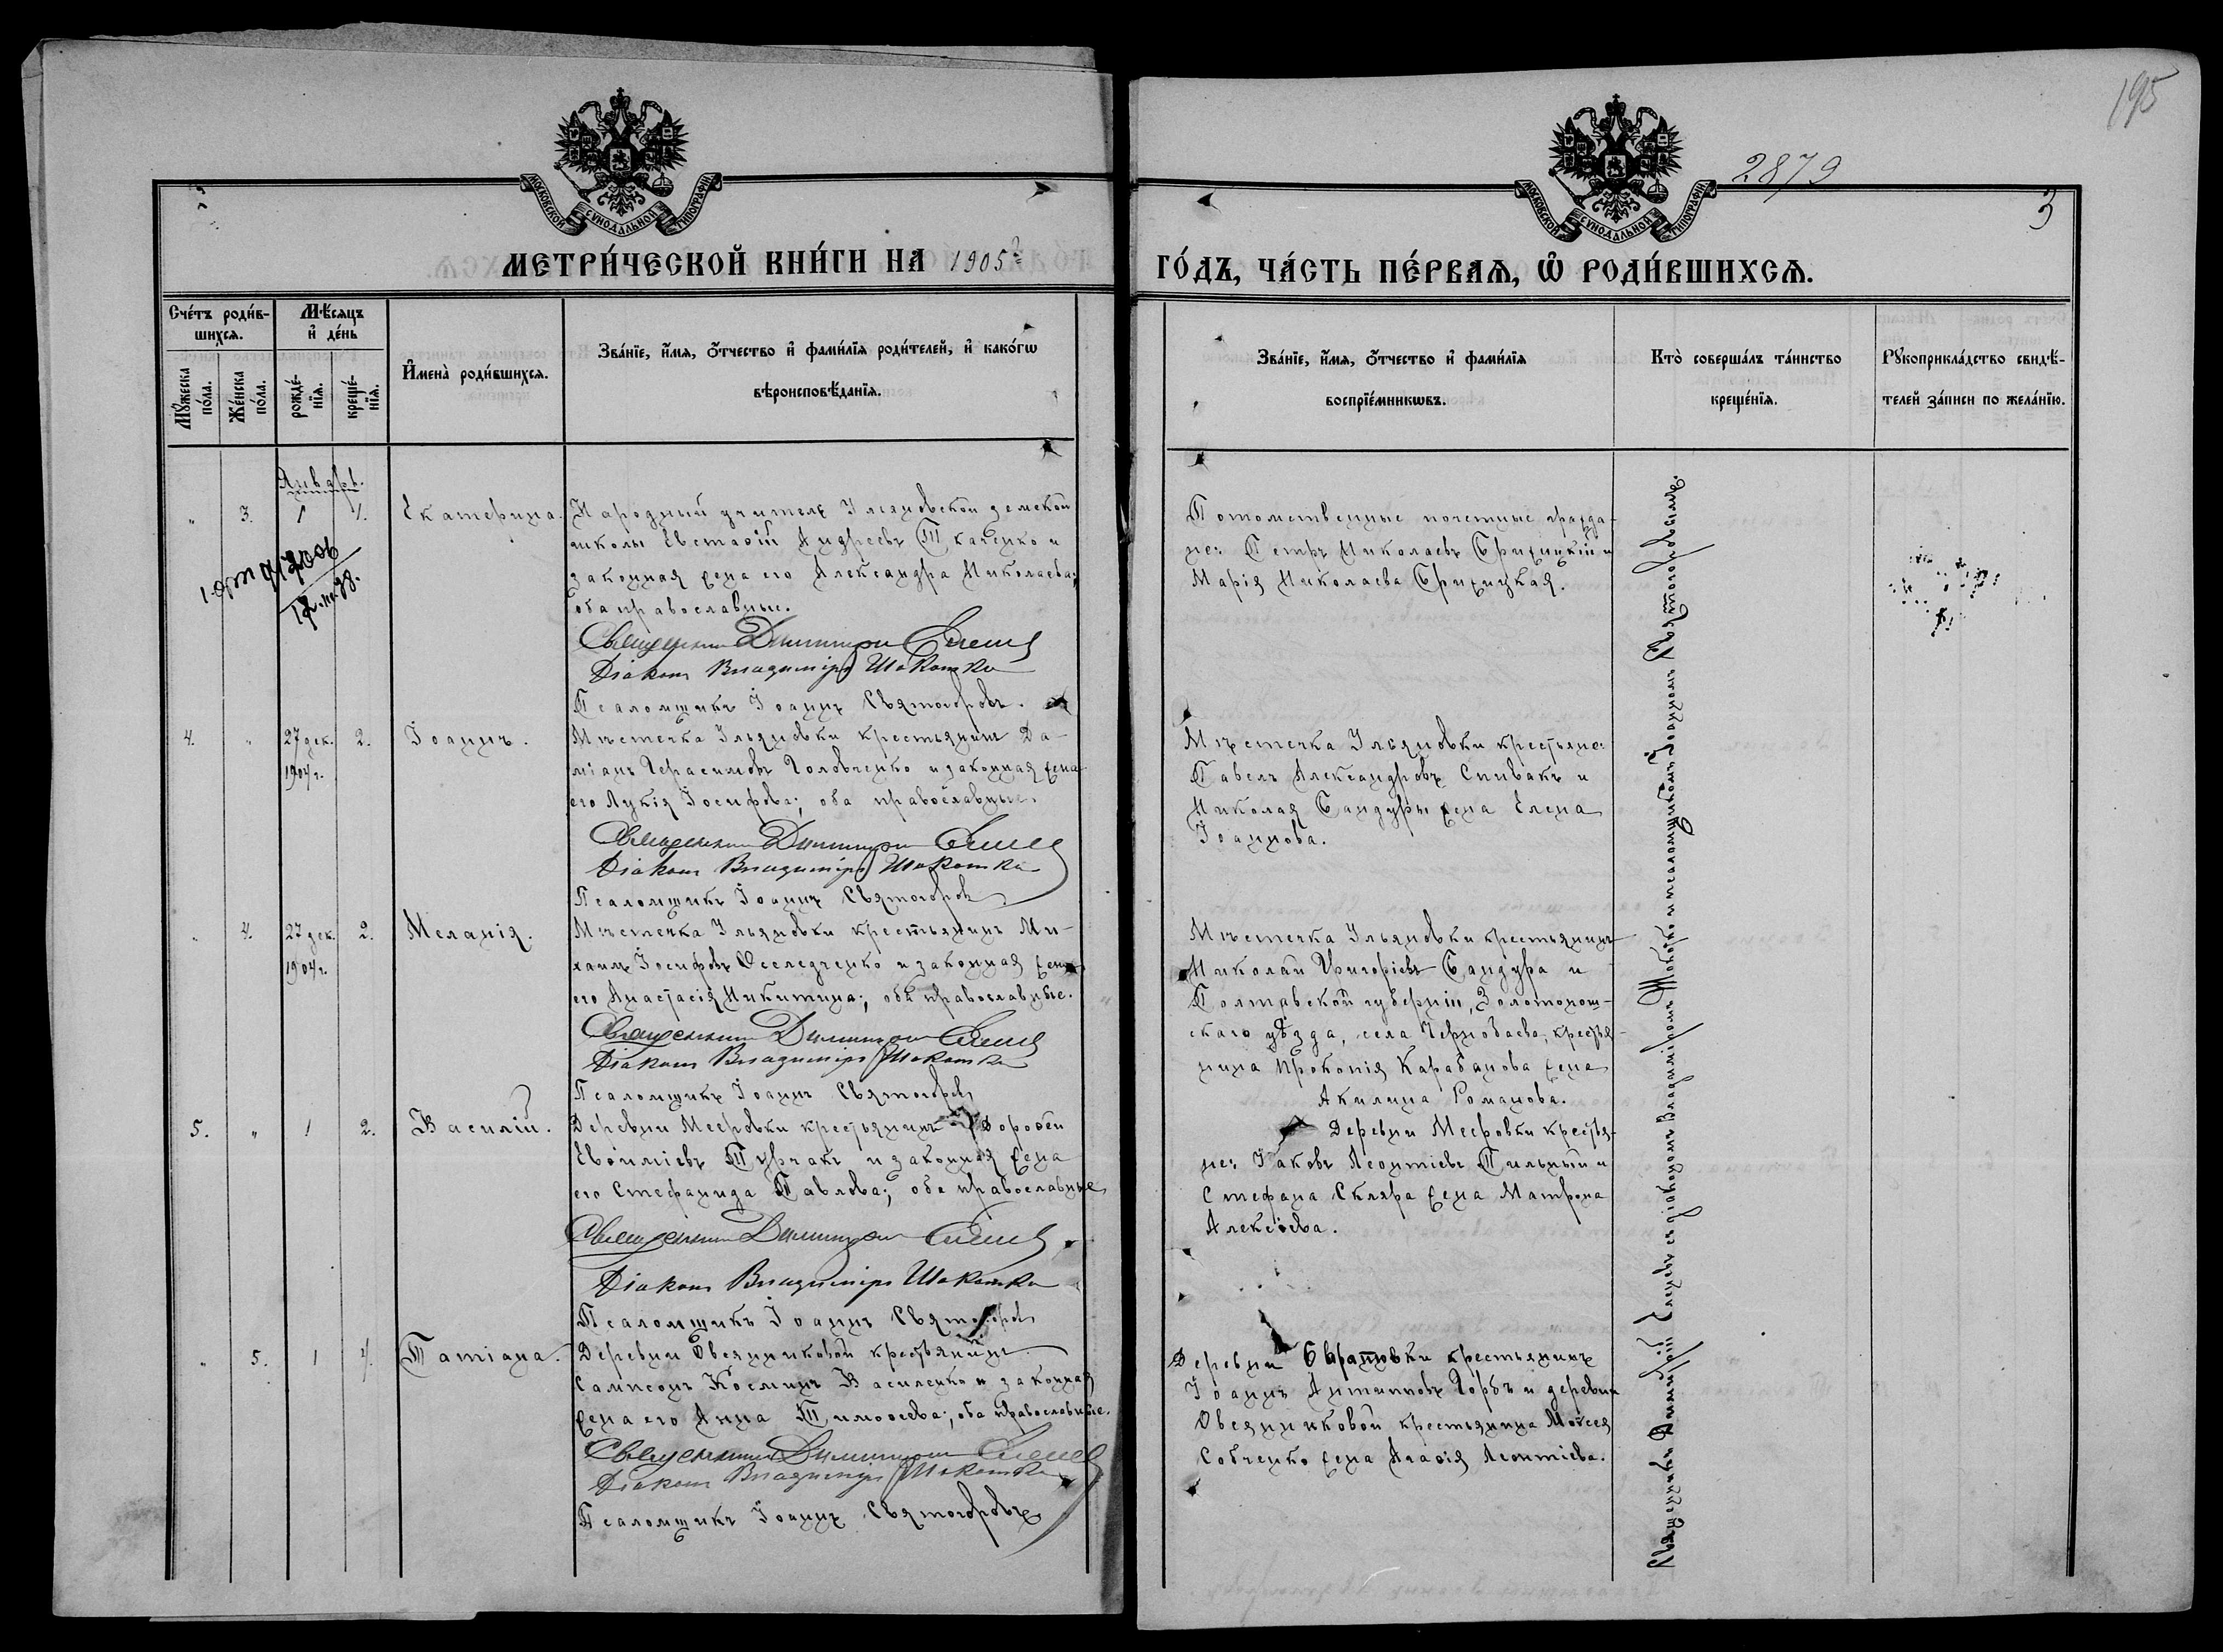 195
2879
3
МОСКОВСКОЙ СѴНОДАЛЬНОЙ ТИПОГРАФІИ
МОСКОВСКОЙ СѴНОДАЛЬНОЙ ТИПОГРАФІИ
МЕТРИ́ЧЕСКОЙ КНИ́ГИ НА 1905 г.
ГО́ДЪ, ЧА́СТЬ ПЕ́РВАѦ, Ѽ РОДИ́ВШИХСѦ.
Сче́тъ роди́в-
шихсѧ.
Мꙋ́жеска
по́ла.
Же́нска
по́ла.
Мѣ́сѧцъ
и҆ де́нь
рожде́-
нїѧ.
креще́-
нїѧ.
И҆мена̀ роди́вшихсѧ.
Зва́нїе, и҆́мѧ, ѻ҆́тчество и҆ фами́лїѧ роди́телей, и҆ како́гѡ
вѣроисповѣ́данїѧ.
Зва́нїе, и҆́мѧ, ѻ҆́тчество и҆ фами́лїѧ
воспрїе́мникѡвъ.
Кто̀ соверша́лъ та́инство
креще́нїѧ.
Рꙋкоприкла́дство свидѣ́-
телей за́писи по жела́нїю.
Январь.
" 3. 1 1. Екатерина.
Народный учитель Ильяновской земской
школы Евстаѳій Андреевъ Ткаченко и
законная жена его Александра Николаева;
оба православные.
Священникъ Димитрій
Діаконъ Владиміръ
Псаломщикъ Іоаннъ Святогоровъ.
Потомственные почетные гражда-
не: Петръ Николаевъ Брижицкій и
Марія Николаева Брижицкая.
4. " 27 дек. 1904 г. 2. Іоаннъ.
Мѣстечка Ильяновки крестьянинъ Да-
міанъ Герасимовъ Головченко и законная жена
его Лукія Іосифова; оба православные.
Священникъ Димитрій
Діаконъ Владиміръ
Псаломщикъ Іоаннъ Святогоровъ
Мѣстечка Ильяновки крестьяне:
Павелъ Александровъ Спивакъ и
Николая Бандуры жена Елена
Іоаннова.
" 4. 27 дек. 1904 г. 2. Меланія.
Мѣстечка Ильяновки крестьянинъ Ми-
хаилъ Іосифовъ Оселедченко и законная жена
его Анастасія Никитина; оба православные.
Священникъ Димитрій
Діаконъ Владиміръ
Псаломщикъ Іоаннъ Святогоровъ
Мѣстечка Ильяновки крестьянинъ
Николай Григоріевъ Бандура и
Полтавской губерніи, Золотонош-
скаго уѣзда, села Чернобаева, крестья-
нина Прокопія Карабанова жена
Акилина Романова.
5. " 1 2. Василій.
Деревни Мееровки крестьянинъ Дороѳей
Евѳиміевъ Турчакъ и законная жена
его Стефанида Павлова; оба православные
Священникъ Димитрій
Діаконъ Владиміръ
Псаломщикъ Іоаннъ Святогоровъ
Деревни Мееровки крестья-
не: Іаковъ Леонтіевъ Пильный и
Стефана Скляра жена Матрона
Алексіева.
" 5. 1 4. Татіана.
Деревни Овсянниковой крестьянинъ
Сампсонъ Косминъ Василенко и законная
жена его Анна Тимоѳеева; оба православные.
Священникъ Димитрій
Діаконъ Владиміръ
Псаломщикъ Іоаннъ Святогоровъ
Деревни крестьянинъ
Іоаннъ Антиповъ Горбъ и деревни
Овсянниковой крестьянина Моисея
Собченко жена Агаѳія Леонтіева.
Священникъ Димитрій съ діакономъ Владиміромъ и псаломщикомъ Іоанномъ Святогоровымъ.